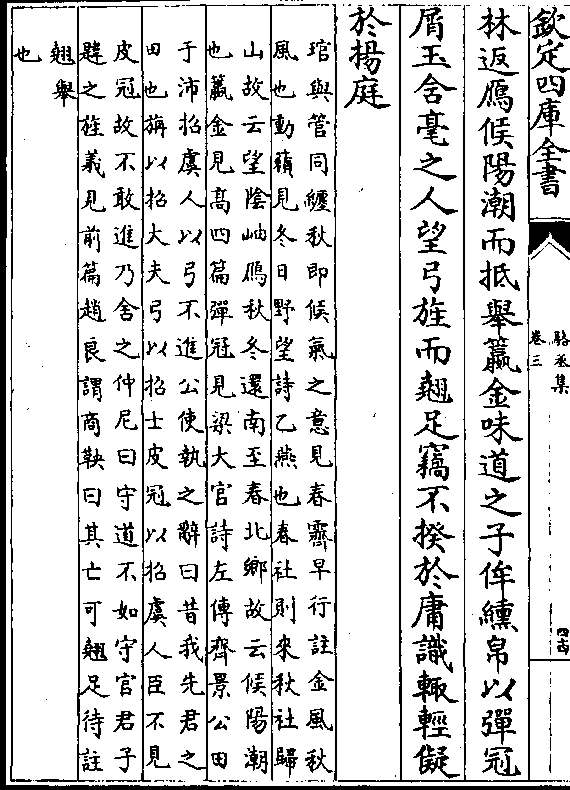 欽定四庫全書
駱丞集
卷三
林返鴈候陽潮而抵舉籯金味道之子侔纁帛以彈冠
屑玉含毫之人望弓旌而翹足竊不揆於庸識輙輕儗
於揚庭
琯與管同纏秋即候氣之意見春霽早行註金風秋
風也動蘋見冬日野望詩乙燕也春社則來秋社歸
山故云望陰岫鴈秋冬還南至春北鄉故云候陽潮
也籯金見髙四篇彈冠見梁大官詩左傳齊景公田
于沛招虞人以弓不進公使執之辭曰昔我先君之
田也旃以招大夫弓以招士皮冠以招虞人臣不見
皮冠故不敢進乃舍之仲尼曰守道不如守官君子
韙之旌義見前篇趙良謂商鞅曰其亡可翹足待註
翹舉
也